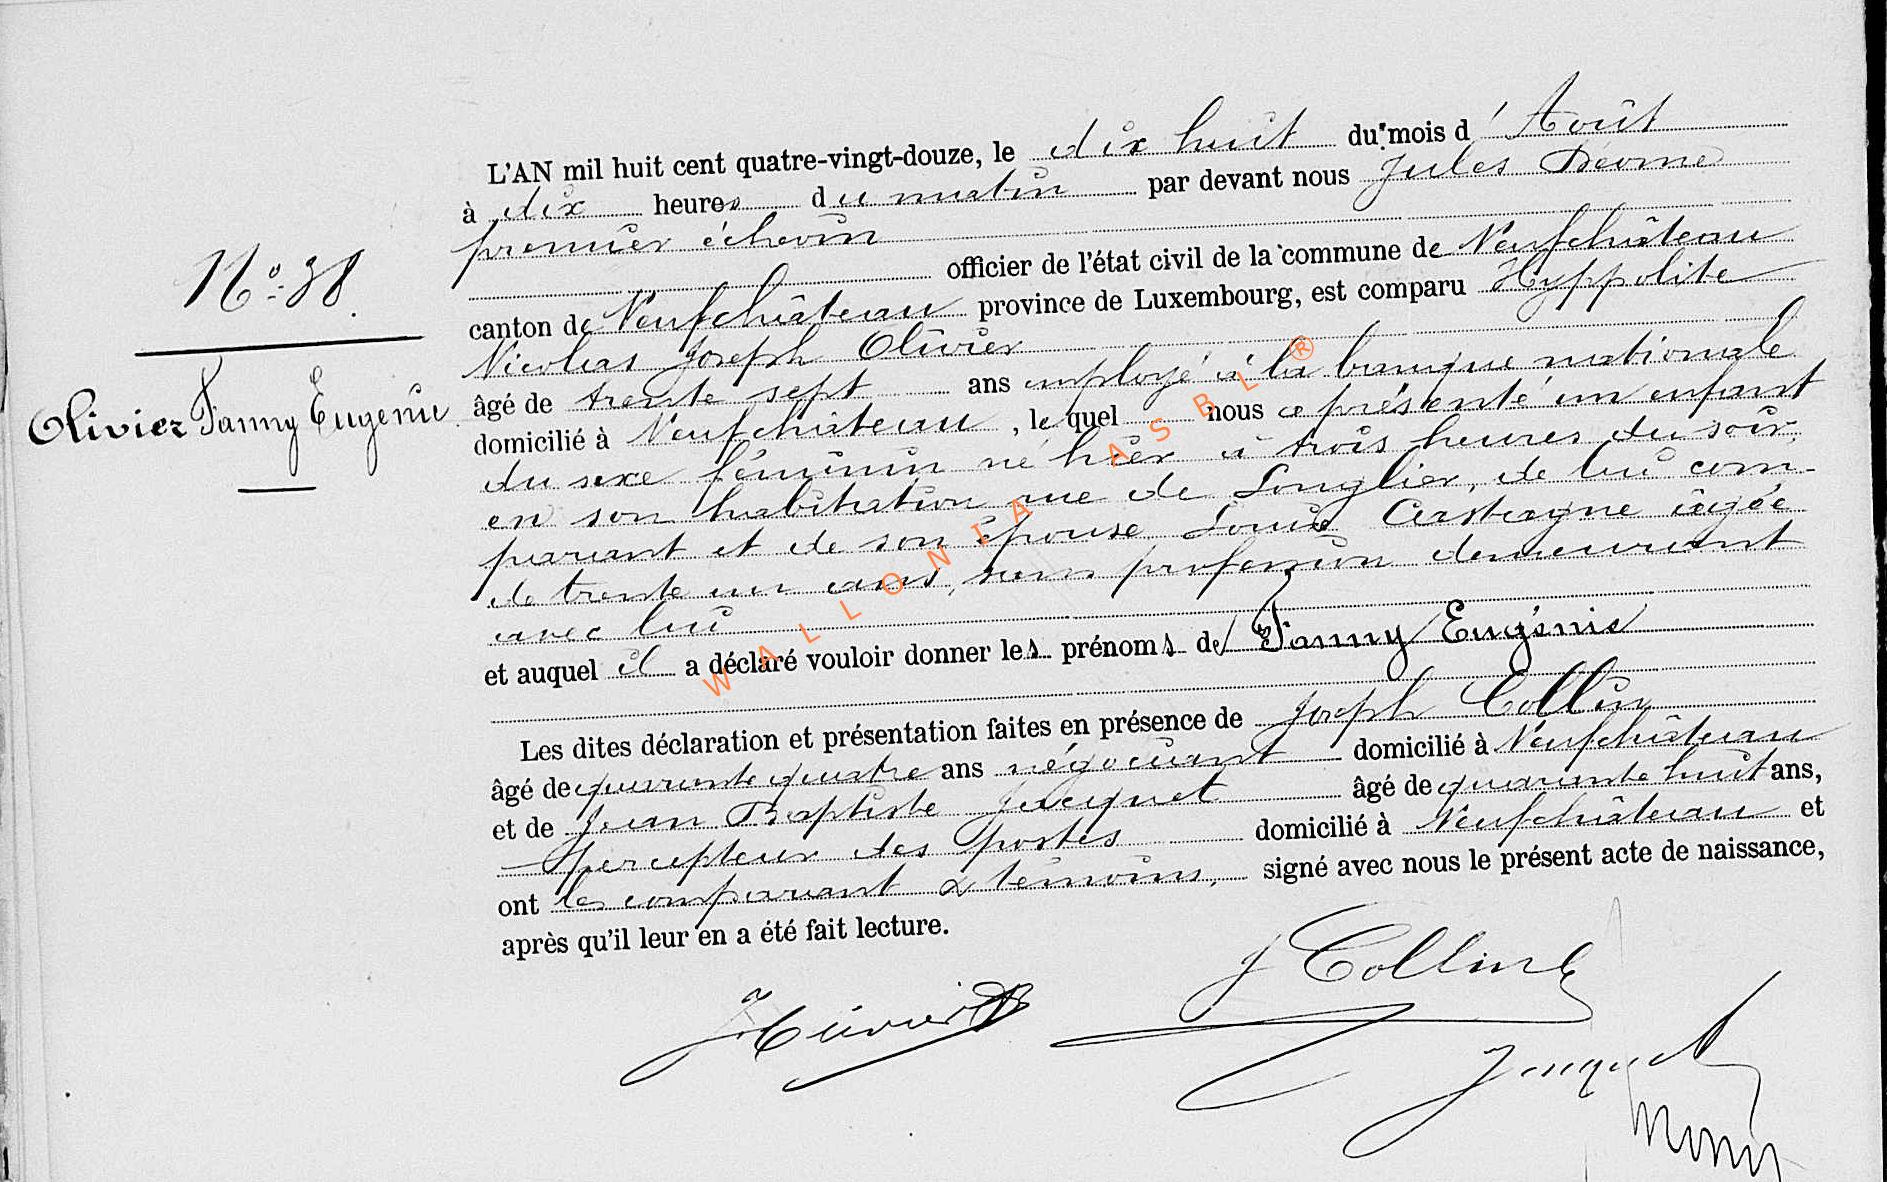 L'AN mil huit cent quatre-vingt-douze, le dix huit du mois d'Août
à dix heures du matin par devant nous Jules
premier échevin
officier de l'état civil de la commune de Neufchâteau
N° 38.
canton de Neufchâteau province de Luxembourg, est comparu Hyppolite
Nicolas Joseph Olivier
âgé de trente sept ans employé à la banque nationale
Olivier Fanny Eugénie
domicilié à Neufchâteau, lequel nous a présenté un enfant
du sexe féminin né hier à trois heures du soir,
en son habitation rue de Longlier, de lui com-
parant et de son épouse Louise Castagne âgée
de trente un ans, sans profession demeurant
avec lui
et auquel il a déclaré vouloir donner les prénoms de Fanny Eugénie
Les dites déclaration et présentation faites en présence de Joseph Collin
âgé de quarante quatre ans négociant domicilié à Neufchâteau
et de Jean Baptiste Jacquet âgé de quarante huit ans,
percepteur des postes domicilié à Neufchâteau et
ont les comparant & témoins, signé avec nous le présent acte de naissance,
après qu'il leur en a été fait lecture.
J Collin
Olivier
Jacquet
WALLONIA ASBL ®